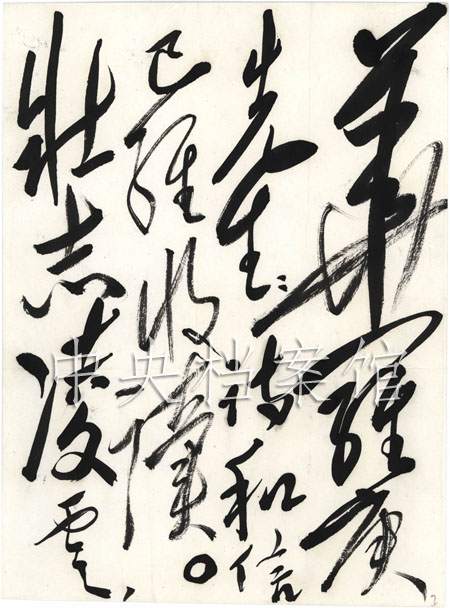 華羅庚
先生:詩和信
已經收讀。
壯志凌雲,
中央档案馆
2